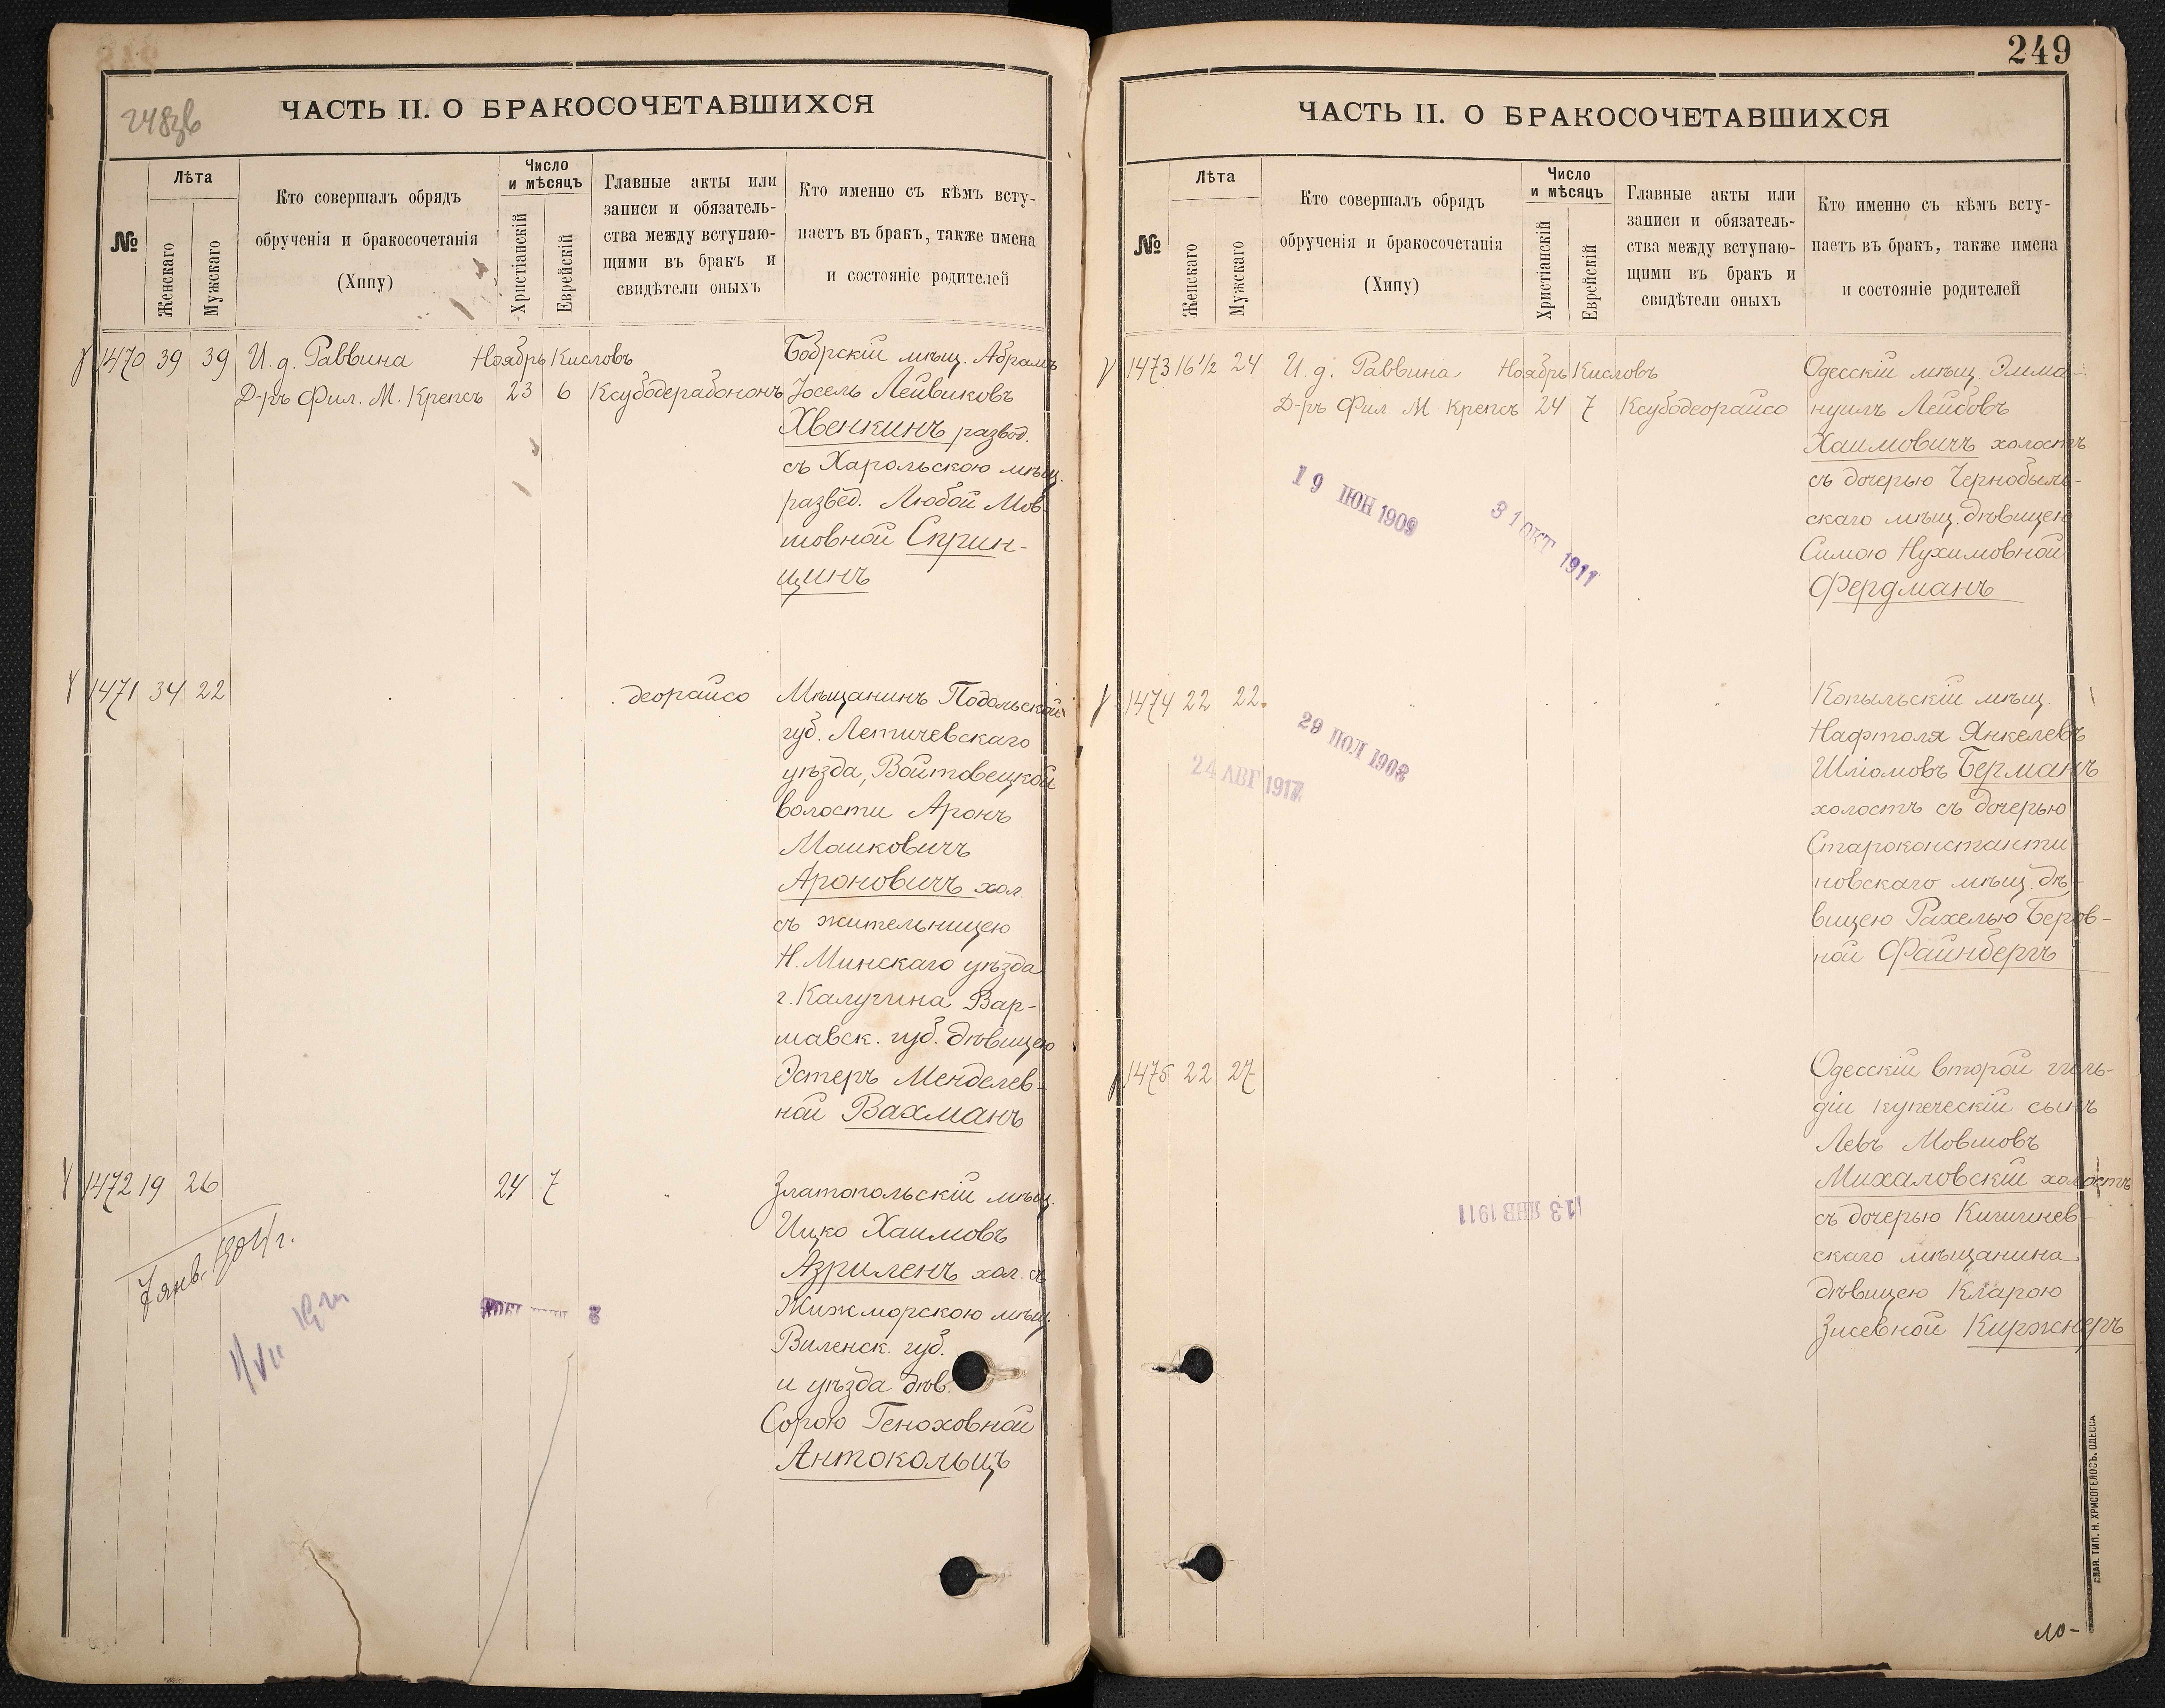 248зв
ЧАСТЬ II. О БРАКОСОЧЕТАВШИХСЯ
№
Лѣта
Женскаго
Мужскаго
Кто совершалъ обрядъ
обрученія и бракосочетанія
(Хипу)
Число
и мѣсяцъ
Христіанскій
Еврейскій
Главные акты или
записи и обязатель-
ства между вступаю-
щими въ бракъ и
свидѣтели оныхъ
Кто именно съ кѣмъ всту-
паетъ въ бракъ, также имена
и состояніе родителей
1470 39 39 И. д. Раввина Ноябрь Кисловъ Бобрскій мѣщ. Абрамъ
Д-ръ Фил. М. Крепсъ 23 6 Ксубодерабононъ Іосель Лейвиковъ
Хвенкинъ развод.
съ Харольскою мѣщ.
развед. Любой Мов-
шовной Сприн-
цинъ
1471 34 22 деорайсо Мѣщанинъ Подольской
губ. Летичевскаго
уѣзда, Войтовецкой
волости Аронъ
Маиковичъ
Ароновичъ хол.
съ жительницею
Н. Минскаго уѣзда
г. Калушина Вар-
шавск. губ. дѣвицею
Эстеръ Менделев-
ной Вахманъ
1472 19 26 24 7 Златопольскій мѣщ.
Ицко Хаимовъ
Азриленъ хол. съ
Жижморскою мѣщ.
Виленск. губ.
и уѣзда дѣв.
Сорою Геноховной
Антокольцъ
7 янв. 1904 г.
249
ЧАСТЬ II. О БРАКОСОЧЕТАВШИХСЯ
№
Лѣта
Женскаго
Мужскаго
Кто совершалъ обрядъ
обрученія и бракосочетанія
(Хипу)
Число
и мѣсяцъ
Христіанскій
Еврейскій
Главные акты или
записи и обязатель-
ства между вступаю-
щими въ бракъ и
свидѣтели оныхъ
Кто именно съ кѣмъ всту-
паетъ въ бракъ, также имена
и состояніе родителей
1473 16 1/2 24 И. д. Раввина Ноябрь Кисловъ Одесскій мѣщ. Эмма-
Д-ръ Фил. М Крепсъ 24 7 Ксубодеорайсо нуилъ Лейбовъ
Хаимовичъ холостъ
съ дочерью Чернобыль-
скаго мѣщ. дѣвицею
Симою Нухимовной
Фердманъ
19 ІЮН 1909
31 ОКТ 1911
1474 22 22 Копыльскій мѣщ.
Нафтоля Янкелевъ
Шліомовъ Берманъ
холостъ съ дочерью
Староконстанти-
новскаго мѣщ. дѣ-
вицею Рахелью Беров-
ной Файнбергъ
29 ІЮЛ 1908
24 АВГ 1917
1475 22 27 Одесскій второй гиль-
діи купеческій сынъ
Левъ Мовшовъ
Михаловскій холостъ
съ дочерью Кишинев-
скаго мѣщанина
дѣвицею Кларою
Зисевной Киржнеръ
13 ЯНВ 1911
СЛАВ. ТИП. Н. ХРИСОГЕЛОСЪ, ОДЕССА